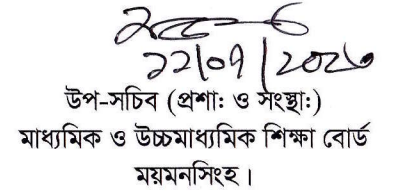 ২২/০৭/২০২৩
উপ-সচিব (প্রশাঃ ও সংস্থাঃ)
মাধ্যমিক ও উচ্চমাধ্যমিক শিক্ষা বোর্ড
ময়মনসিংহ।